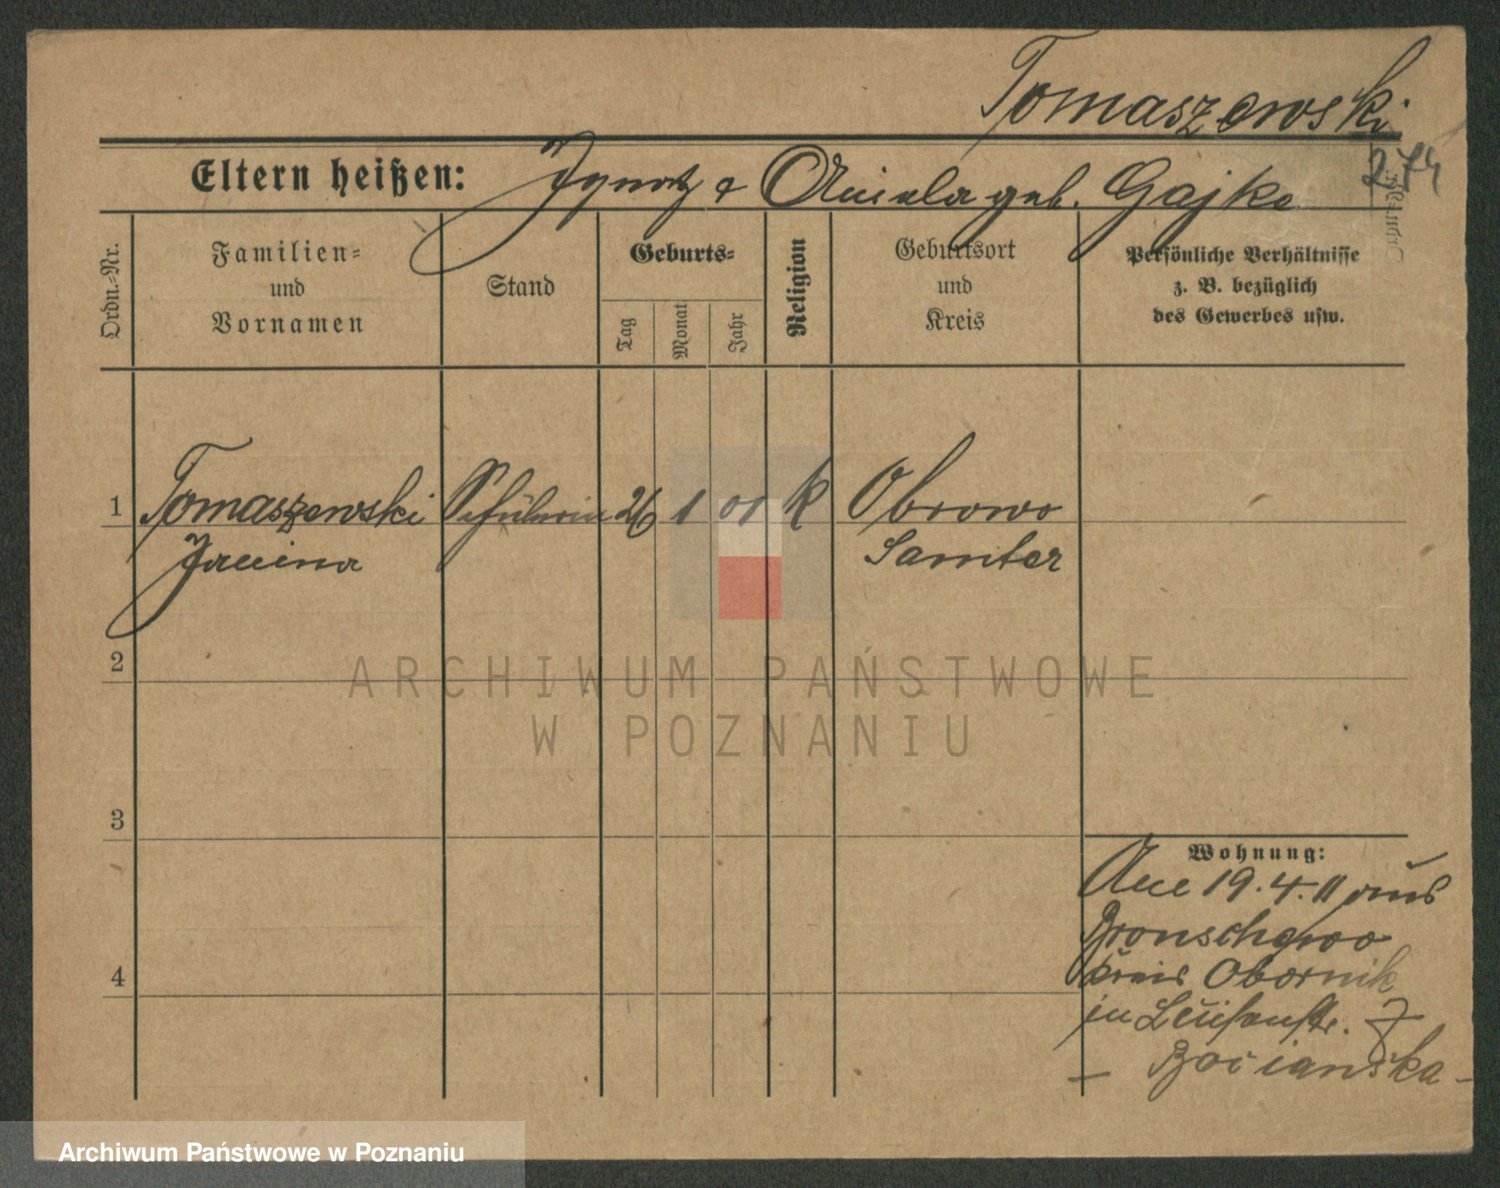 Tomaszewski
274
Eltern heißen: Ignatz & Aniela geb. Gajke
Ordn.-Nr.
Familien-
und
Vornamen
Stand
Geburts-
Tag
Monat
Jahr
Religion
Geburtsort
und
Kreis
Persönliche Verhältnisse
z. B. bezüglich
des Gewerbes usw.
1 Tomaszewski Schülerin 26 1 01 k Obrowo
Janina Samter
2
3
4
Wohnung:
19.4.11 aus
Kreis Obornik
in Luisenstr. 7
– Bocianska –
ARCHIWUM PAŃSTWOWE
W POZNANIU
Archiwum Państwowe w Poznaniu